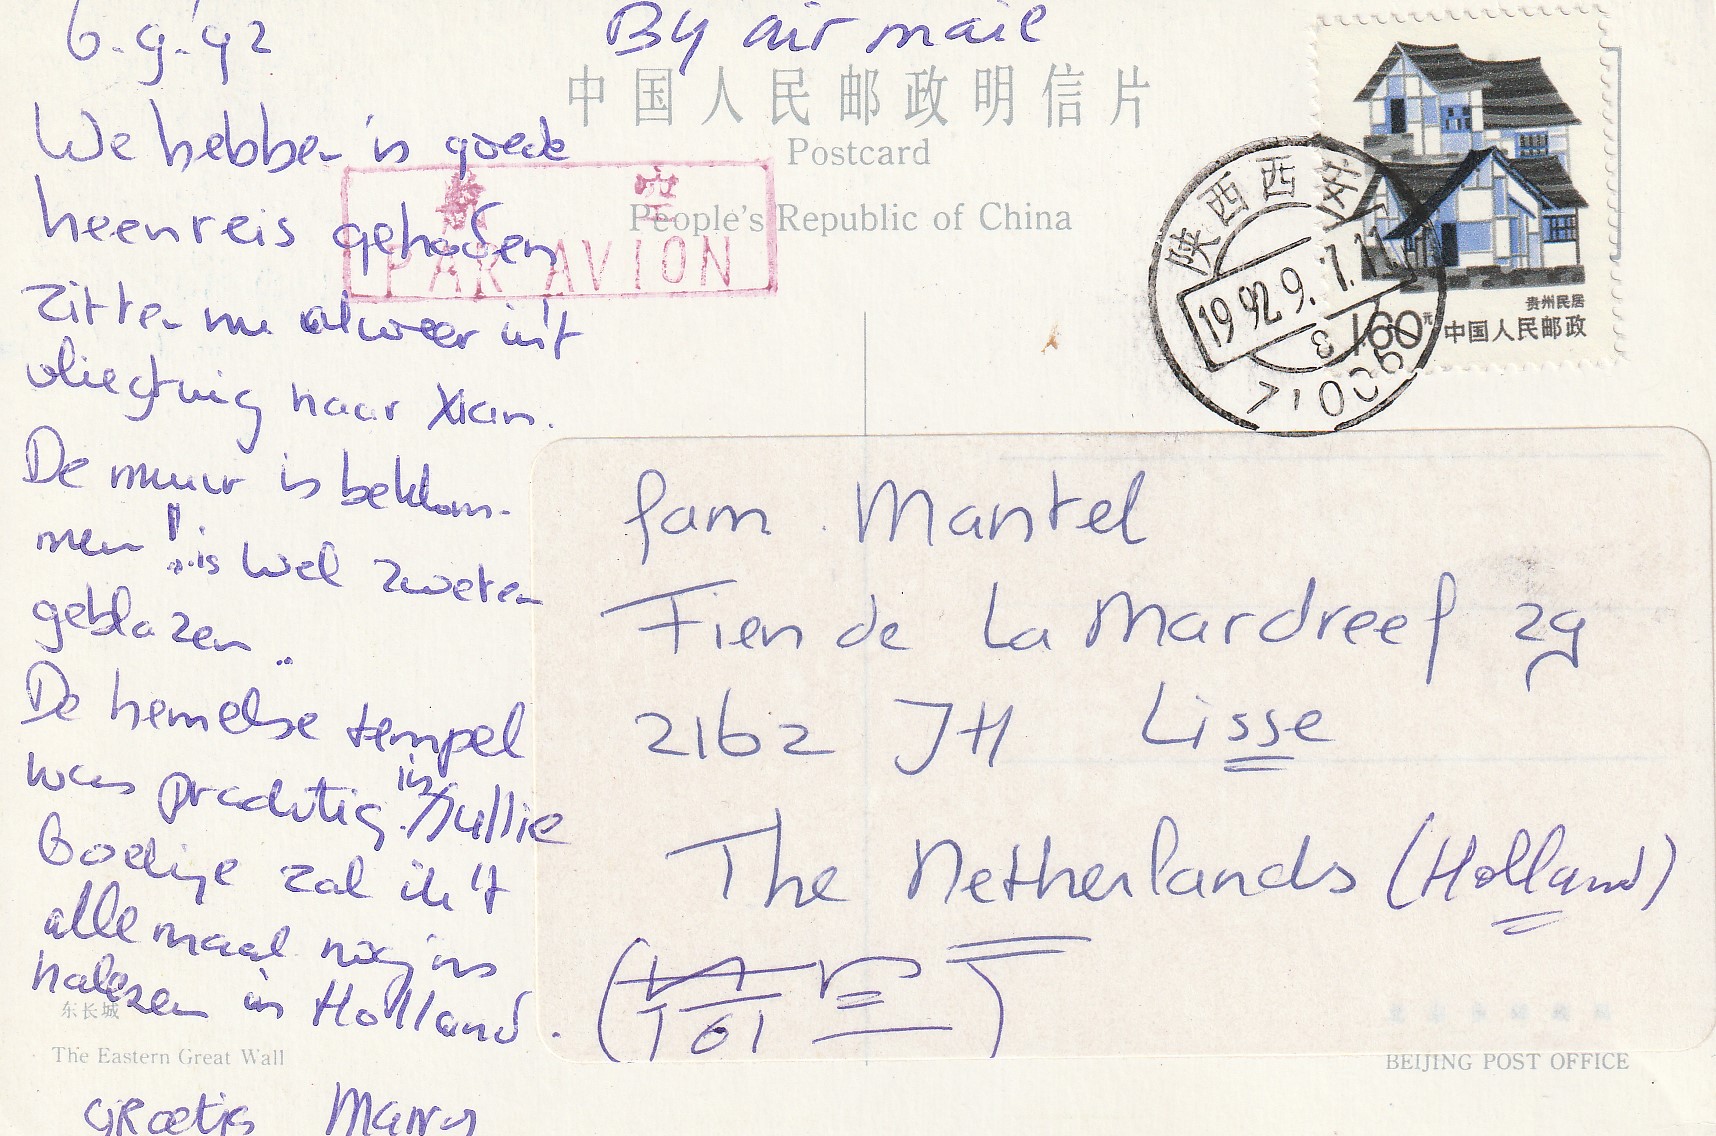 6-9-'92
We hebben 'n goede
heenreis gehad en
zitten nu alweer in 't
vliegtuig naar Xian.
De muur is beklom-
men !! .. is wel zweten
geblazen ..
De hemelse tempel
was prachtig. in jullie
Boekje zal ik 't
allemaal nog ins
nalezen in Holland.
groetjes Marry
东长城
The Eastern Great Wall
By air mail
中国人民邮政明信片
Postcard
People's Republic of China
航空
PAR AVION
陕西西安
1992.9.7.11
8
710006
贵州民居
1.60元 中国人民邮政
fam. Mantel
Fien de La Mardreef 29
2162 JH Lisse
The Netherlands (Holland)
BEIJING POST OFFICE